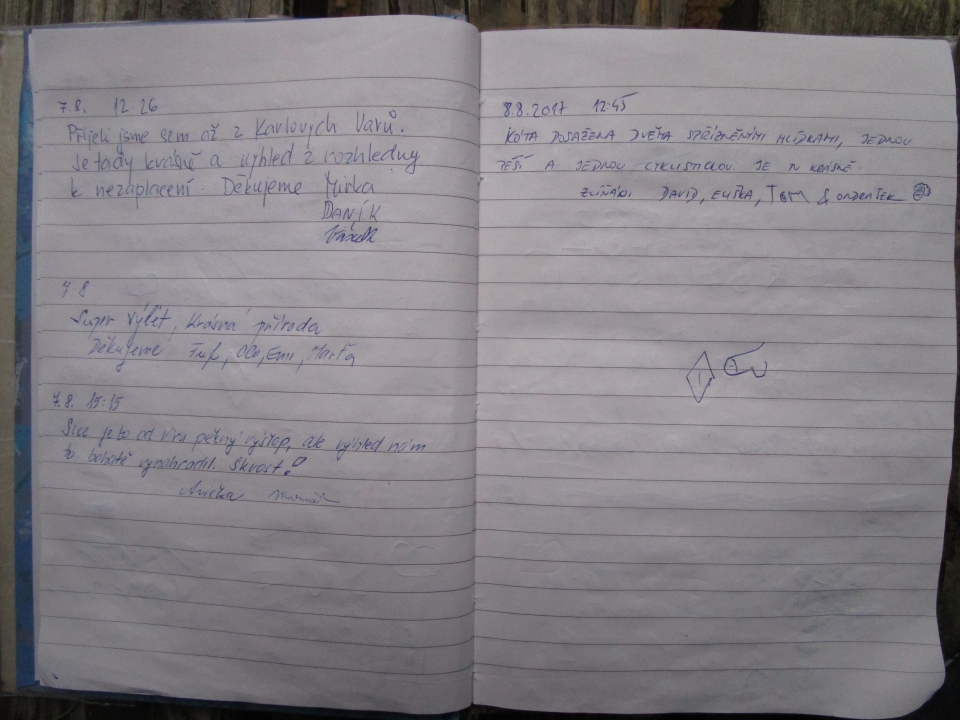 7.8. 12:26
Přijeli jsme sem až z Karlových Varů.
Je tady krásně a výhled z rozhledny
k nezaplacení. Děkujeme Mirka
DANÍK
7.8.
Super výlet, krásná příroda
Děkujeme Ťuf, Olo, Emi, Marťa
7.8. 15:15
Sice je to od viru pěkný výstop, ale výhled nám
to bohatě vynahradil. Skvost!
Anička
8.8.2017 12:45
KÓTA DOSAŽENA DVĚMA SPŘÍZNĚNÝMI HLÍDKAMI, JEDNOU
PĚŠÍ A JEDNOU CYKLISTICKOU. JE TU KRÁSNĚ.
DAVID, ELIŠKA, TOM & ONDRÁŠEK